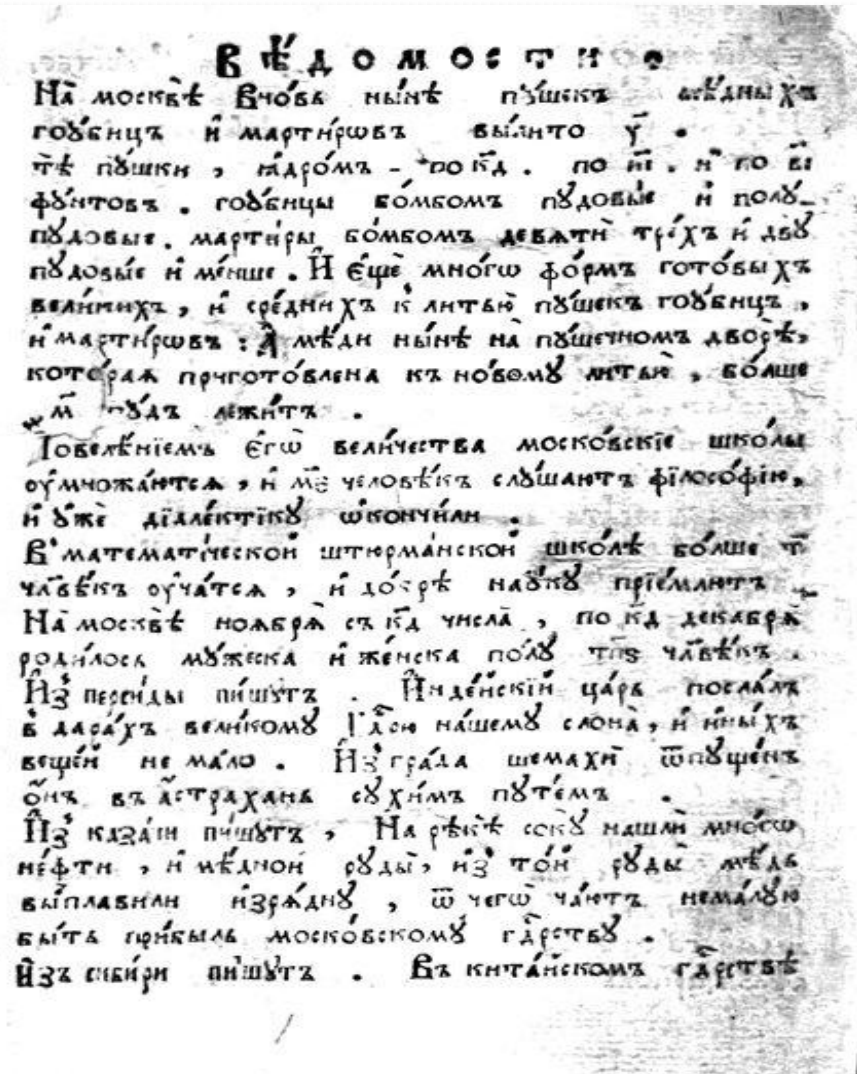 Вѣ́домости .
На̀ москвѣ̀ вно́вь ны́нѣ пꙋ́шекъ мѣ́дныхъ
гоꙋбицъ и҆ марти́рѡвъ вы́лито у҃ .
тѣ̀ пꙋ́шки , ꙗ҆дро́мъ - по к҃д . по и҃і . и҆ по в҃і
фꙋ́нтовъ . гоꙋбицы бо́мбомъ пꙋдовы́е и҆ полꙋ-
пꙋдовые . марти́ры бо́мбомъ девѧтѝ тре́хъ и҆ двꙋ
пꙋдовы́е и҆ ме́нше . И҆ є҆щѐ мно́гѡ фо́рмъ гото́выхъ
вели́кихъ , и҆ сре́днихъ к̾ литью̀ пꙋ́шекъ гоꙋбицъ ,
и҆ марти́рѡвъ : А҆ мѣ́ди ны́нѣ на̀ пꙋ́шечномъ дворѣ̀ ,
кото́раѧ пригото́влена къ но́вомꙋ литью̀ , бо́лше
м҃ пꙋ́дъ лежи́тъ .
Повелѣ́нїемъ є҆гѡ̀ вели́чества моско́вскїе шко́лы
оу҆множа́ютсѧ , и҆ м҃е человѣ́къ слꙋ́шаютъ фїлосо́фїю ,
и҆ ᲂу҆жѐ дїале́ктїкꙋ ѡ҆кончи́ли .
В̾ математи́ческой штюрма́нской шко́лѣ бо́лше т҃
чл҃вѣ́къ оу҆ча́тсѧ , и҆ до́брѣ наꙋ́кꙋ прїе́млютъ .
На̀ москвѣ̀ ноѧбрѧ̀ съ к҃д числа̀ , по к҃д декабрѧ̀
роди́лось мꙋ́жеска и҆ же́нска по́лꙋ тп҃ѕ чл҃вѣ́къ .
И҆з̾ перси́ды пи́шꙋтъ . И҆нде́йскїй ца́рь посла́лъ
в̾ дара́хъ вели́комꙋ Гд҃рю на́шемꙋ слона̀ , и҆ и҆ны́хъ
веще́й не ма́ло . И҆з̾ гра́да шемахѝ ѿпꙋще́нъ
о҆́нъ въ а҆́страхань сꙋхи́мъ пꙋте́мъ .
И҆з̾ каза́ни пи́шꙋтъ , На рѣкѣ̀ сокꙋ̀ нашлѝ мно́гѡ
не́фти , и҆ мѣ́дной рꙋды̀ , из̾ то́й рꙋды̀ мѣ́дь
вы́плавили и҆зрѧ́днꙋ , ѿ чегѡ̀ ча́ютъ нема́лꙋю
бы́ть при́быль моско́вскомꙋ гд҃рствꙋ .
И҆зъ сиби́ри пи́шꙋтъ . Въ кита́йскомъ гд҃рствѣ